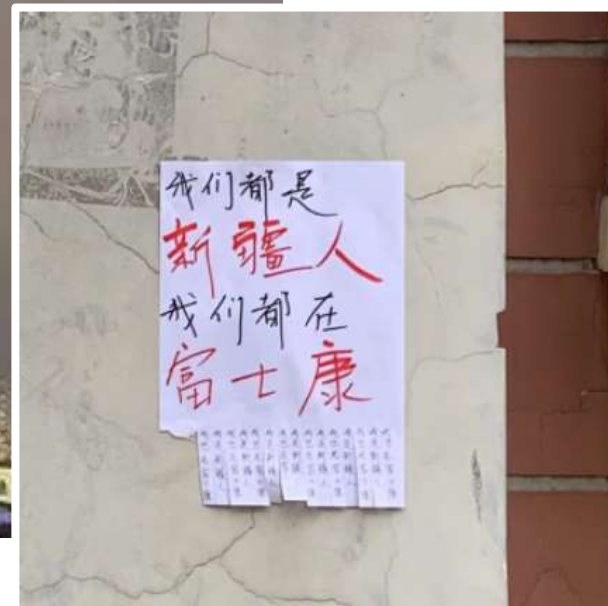 我们都是
新疆人
我们都在
富士康